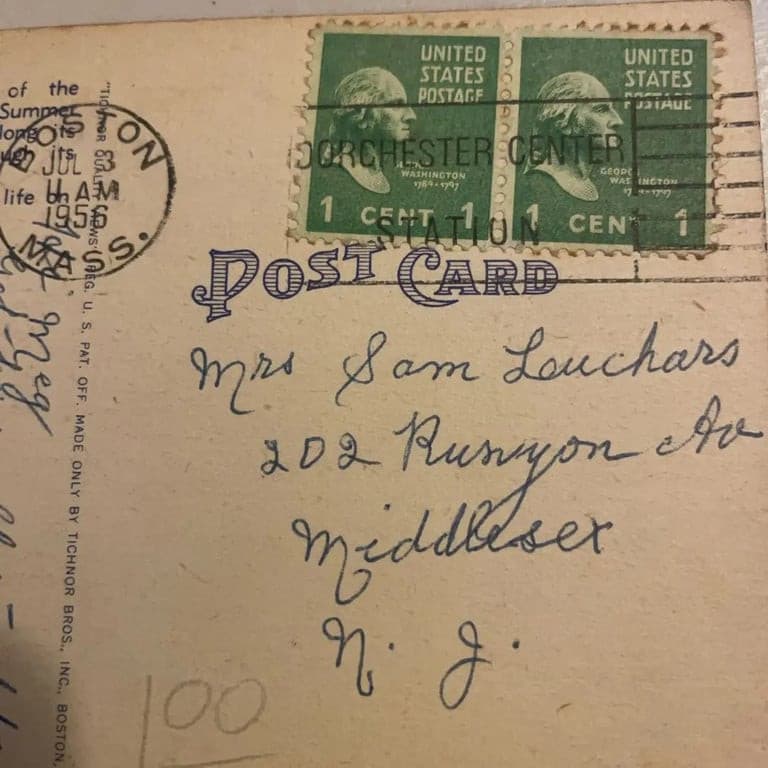 of the
Summer
long its
its
life on
BOSTON
JUL 3
11 AM
1956
MASS.
"TICHNOR QUALITY VIEWS" REG. U. S. PAT. OFF. MADE ONLY BY TICHNOR BROS., INC., BOSTON,
Meg
UNITED
STATES
POSTAGE
WASHINGTON
1789-1797
1 CENT 1
UNITED
STATES
POSTAGE
GEORGE
WASHINGTON
1789-1797
1 CENT 1
DORCHESTER CENTER
STATION
POST CARD
Mrs Sam Leuchars
202 Runyon Av
Middlesex
N. J.
100